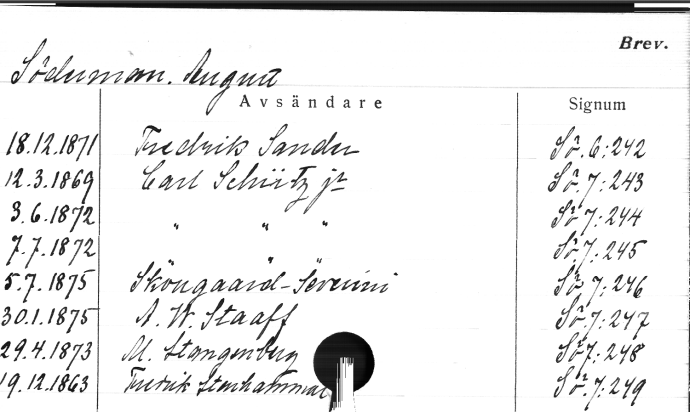 Brev.
Söderman. August
Avsändare Signum
18.12.1871 Fredrik Sander Sö. 6:242
12.3.1869 Carl Schütz jr Sö. 7:243
3.6.1872 " " " Sö. 7:244
7.7.1872 " Sö. 7:245
5.7.1875 Sköngaard-Severini Sö. 7:246
30.1.1875 A. W. Staaff Sö. 7:247
29.4.1873 M. Stangenberg Sö 7:248
19.12.1863 Fredrik Stenhammar Sö. 7:249